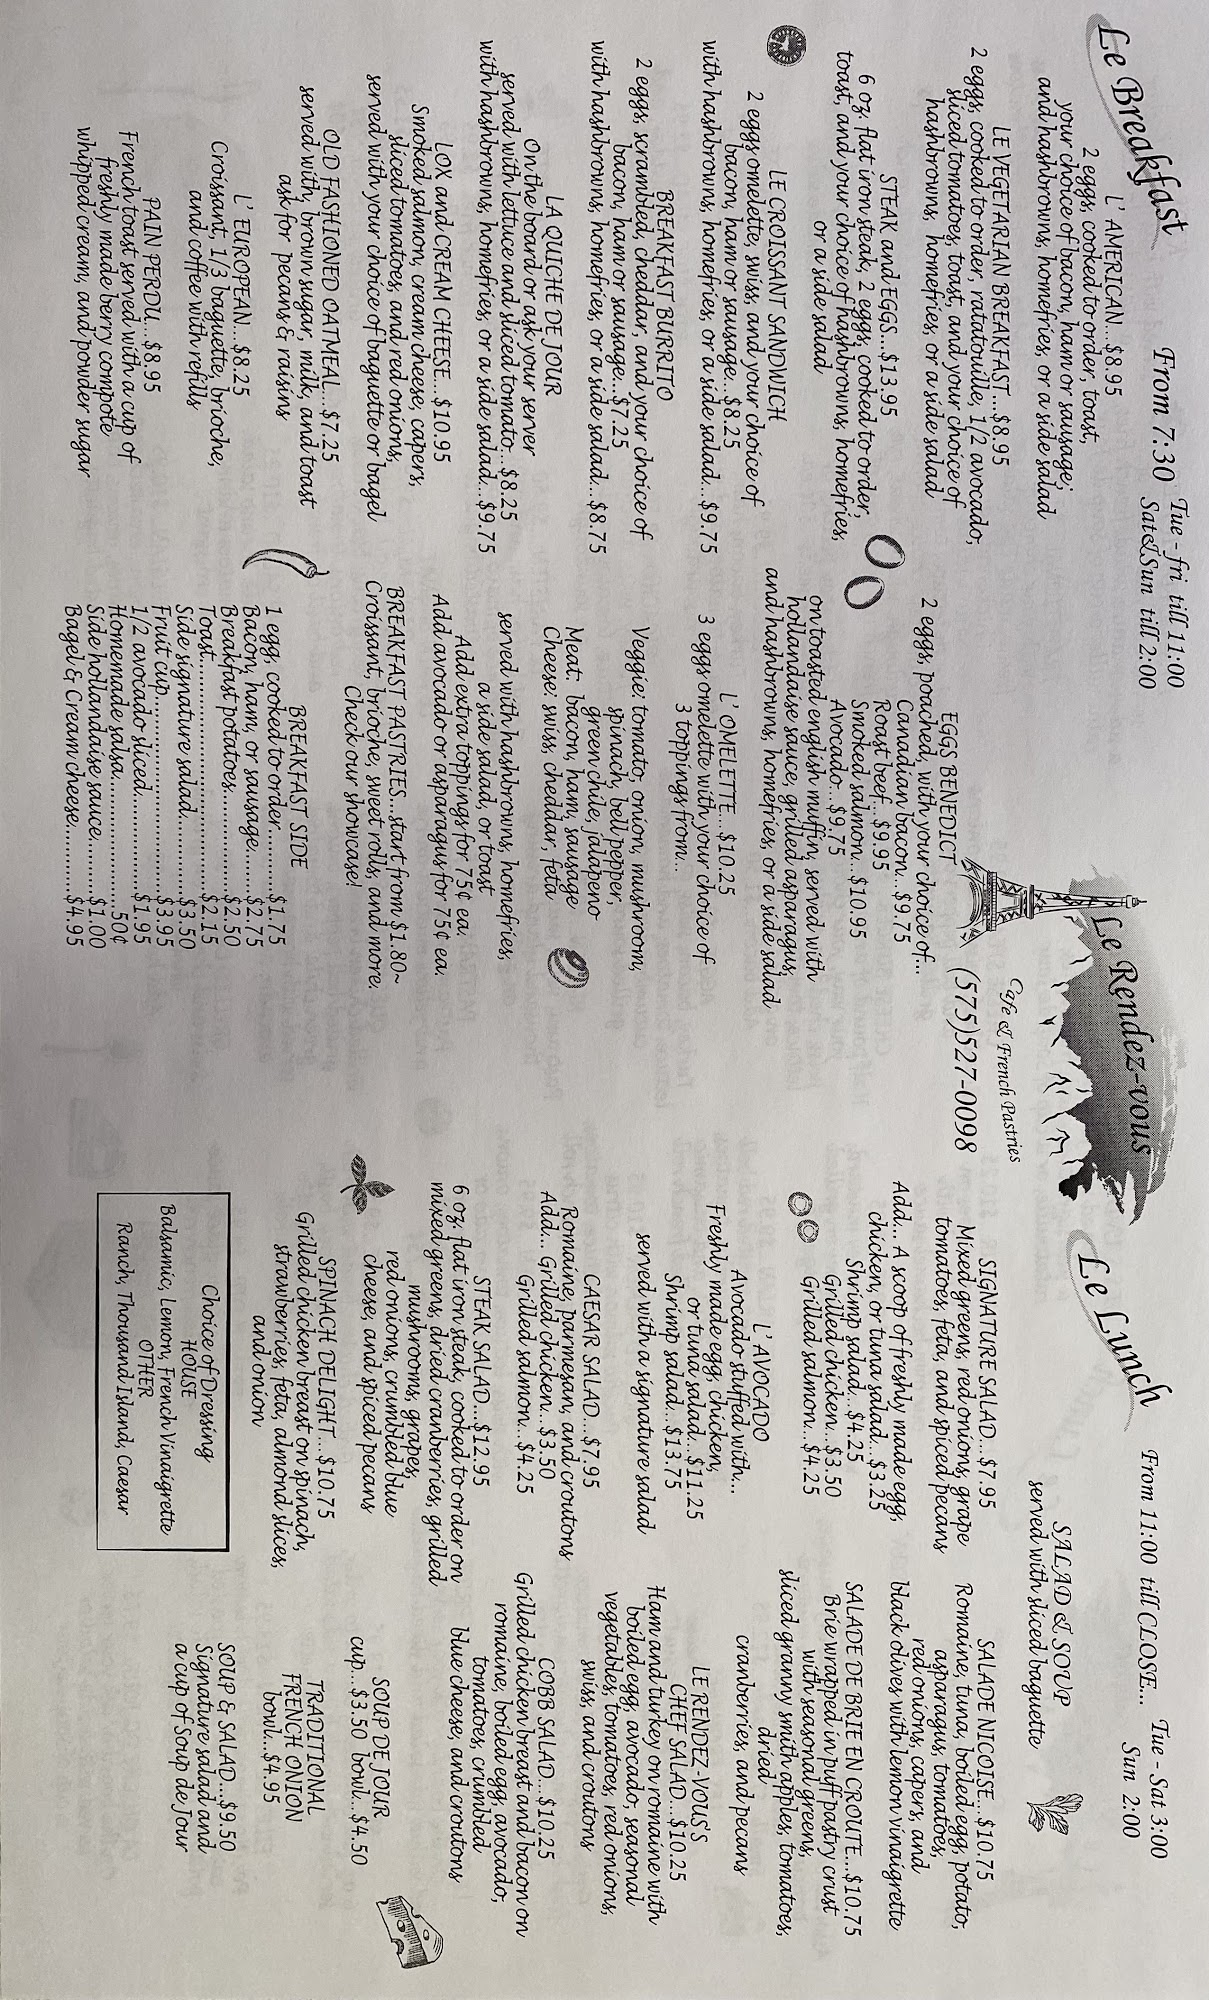 Le Breakfast
From 7:30
Tue - fri till 11:00
Sat&Sun till 2:00
L' AMERICAN...$8.95
2 eggs, cooked to order, toast,
your choice of bacon, ham or sausage;
and hashbrowns, homefries, or a side salad
LE VEGETARIAN BREAKFAST...$8.95
2 eggs, cooked to order, ratatouille, 1/2 avocado,
sliced tomatoes, toast, and your choice of
hashbrowns, homefries, or a side salad
STEAK and EGGS...$13.95
6 oz. flat iron steak, 2 eggs, cooked to order,
toast, and your choice of hashbrowns, homefries,
or a side salad
LE CROISSANT SANDWICH
2 eggs omelette, swiss, and your choice of
bacon, ham or sausage...$8.25
with hashbrowns, homefries, or a side salad...$9.75
BREAKFAST BURRITO
2 eggs, scrambled, cheddar, and your choice of
bacon, ham or sausage...$7.25
with hashbrowns, homefries, or a side salad...$8.75
LA QUICHE DE JOUR
On the board or ask your server
served with lettuce and sliced tomato...$8.25
with hashbrowns, homefries, or a side salad...$9.75
LOX and CREAM CHEESE...$10.95
Smoked salmon, cream cheese, capers,
sliced tomatoes, and red onions,
served with your choice of baguette or bagel
OLD FASHIONED OATMEAL...$7.25
served with, brown sugar, milk, and toast
ask for pecans & raisins
L' EUROPEAN...$8.25
Croissant, 1/3 baguette, brioche,
and coffee with refills
PAIN PERDU...$8.95
French toast served with a cup of
freshly made berry compote
whipped cream, and powder sugar
EGGS BENEDICT
2 eggs, poached, with your choice of...
Canadian bacon...$9.75
Roast beef...$9.95
Smoked salmon...$10.95
Avocado...$9.75
on toasted english muffin, served with
hollandaise sauce, grilled asparagus,
and hashbrowns, homefries, or a side salad
L' OMELETTE...$10.25
3 eggs omelette with your choice of
3 toppings from...
Veggie: tomato, onion, mushroom,
spinach, bell pepper,
green chile, jalapeno
Meat: bacon, ham, sausage
Cheese: swiss, cheddar, feta
served with hashbrowns, homefries,
a side salad, or toast
Add extra toppings for 75¢ ea.
Add avocado or asparagus for 75¢ ea.
BREAKFAST PASTRIES...start from $1.80~
Croissant, brioche, sweet rolls, and more.
Check our showcase!
BREAKFAST SIDE
1 egg, cooked to order.........$1.75
Bacon, ham, or sausage.....$2.75
Breakfast potatoes............$2.50
Toast................................$2.15
Side signature salad..........$3.50
Fruit cup..........................$3.95
1/2 avocado sliced.............$1.95
Homemade salsa.................50¢
Side hollandaise sauce.......$1.00
Bagel & Cream cheese.........$4.95
Le Rendez-vous
Cafe & French Pastries
(575)527-0098
Le Lunch
From 11:00 till CLOSE...
Tue - Sat 3:00
Sun 2:00
SALAD & SOUP
served with sliced baguette
SIGNATURE SALAD...$7.95
Mixed greens, red onions, grape
tomatoes, feta, and spiced pecans
Add... A scoop of freshly made egg,
chicken, or tuna salad...$3.25
Shrimp salad...$4.25
Grilled chicken...$3.50
Grilled salmon...$4.25
L' AVOCADO
Avocado stuffed with...
Freshly made egg, chicken,
or tuna salad...$11.25
Shrimp salad...$13.75
served with a signature salad
CAESAR SALAD...$7.95
Romaine, parmesan, and croutons
Add... Grilled chicken...$3.50
Grilled salmon...$4.25
STEAK SALAD...$12.95
6 oz. flat iron steak, cooked to order on
mixed greens, dried cranberries, grilled
mushrooms, grapes,
red onions, crumbled blue
cheese, and spiced pecans
SPINACH DELIGHT...$10.75
Grilled chicken breast on spinach,
strawberries, feta, almond slices,
and onion
Choice of Dressing
HOUSE
Balsamic, Lemon, French Vinaigrette
OTHER
Ranch, Thousand Island, Caesar
SALADE NICOISE...$10.75
Romaine, tuna, boiled egg, potato,
asparagus, tomatoes,
red onions, capers, and
black olives with lemon vinaigrette
SALADE DE BRIE EN CROUTE...$10.75
Brie wrapped in puff pastry crust
with seasonal greens,
sliced granny smith apples, tomatoes,
dried
cranberries, and pecans
LE RENDEZ-VOUS'S
CHEF SALAD...$10.25
Ham and turkey on romaine with
boiled egg, avocado, seasonal
vegetables, tomatoes, red onions,
swiss, and croutons
COBB SALAD...$10.25
Grilled chicken breast and bacon on
romaine, boiled egg, avocado,
tomatoes, crumbled
blue cheese, and croutons
SOUP DE JOUR
cup...$3.50 bowl...$4.50
TRADITIONAL
FRENCH ONION
bowl...$4.95
SOUP & SALAD...$9.50
Signature salad and
a cup of Soup de Jour